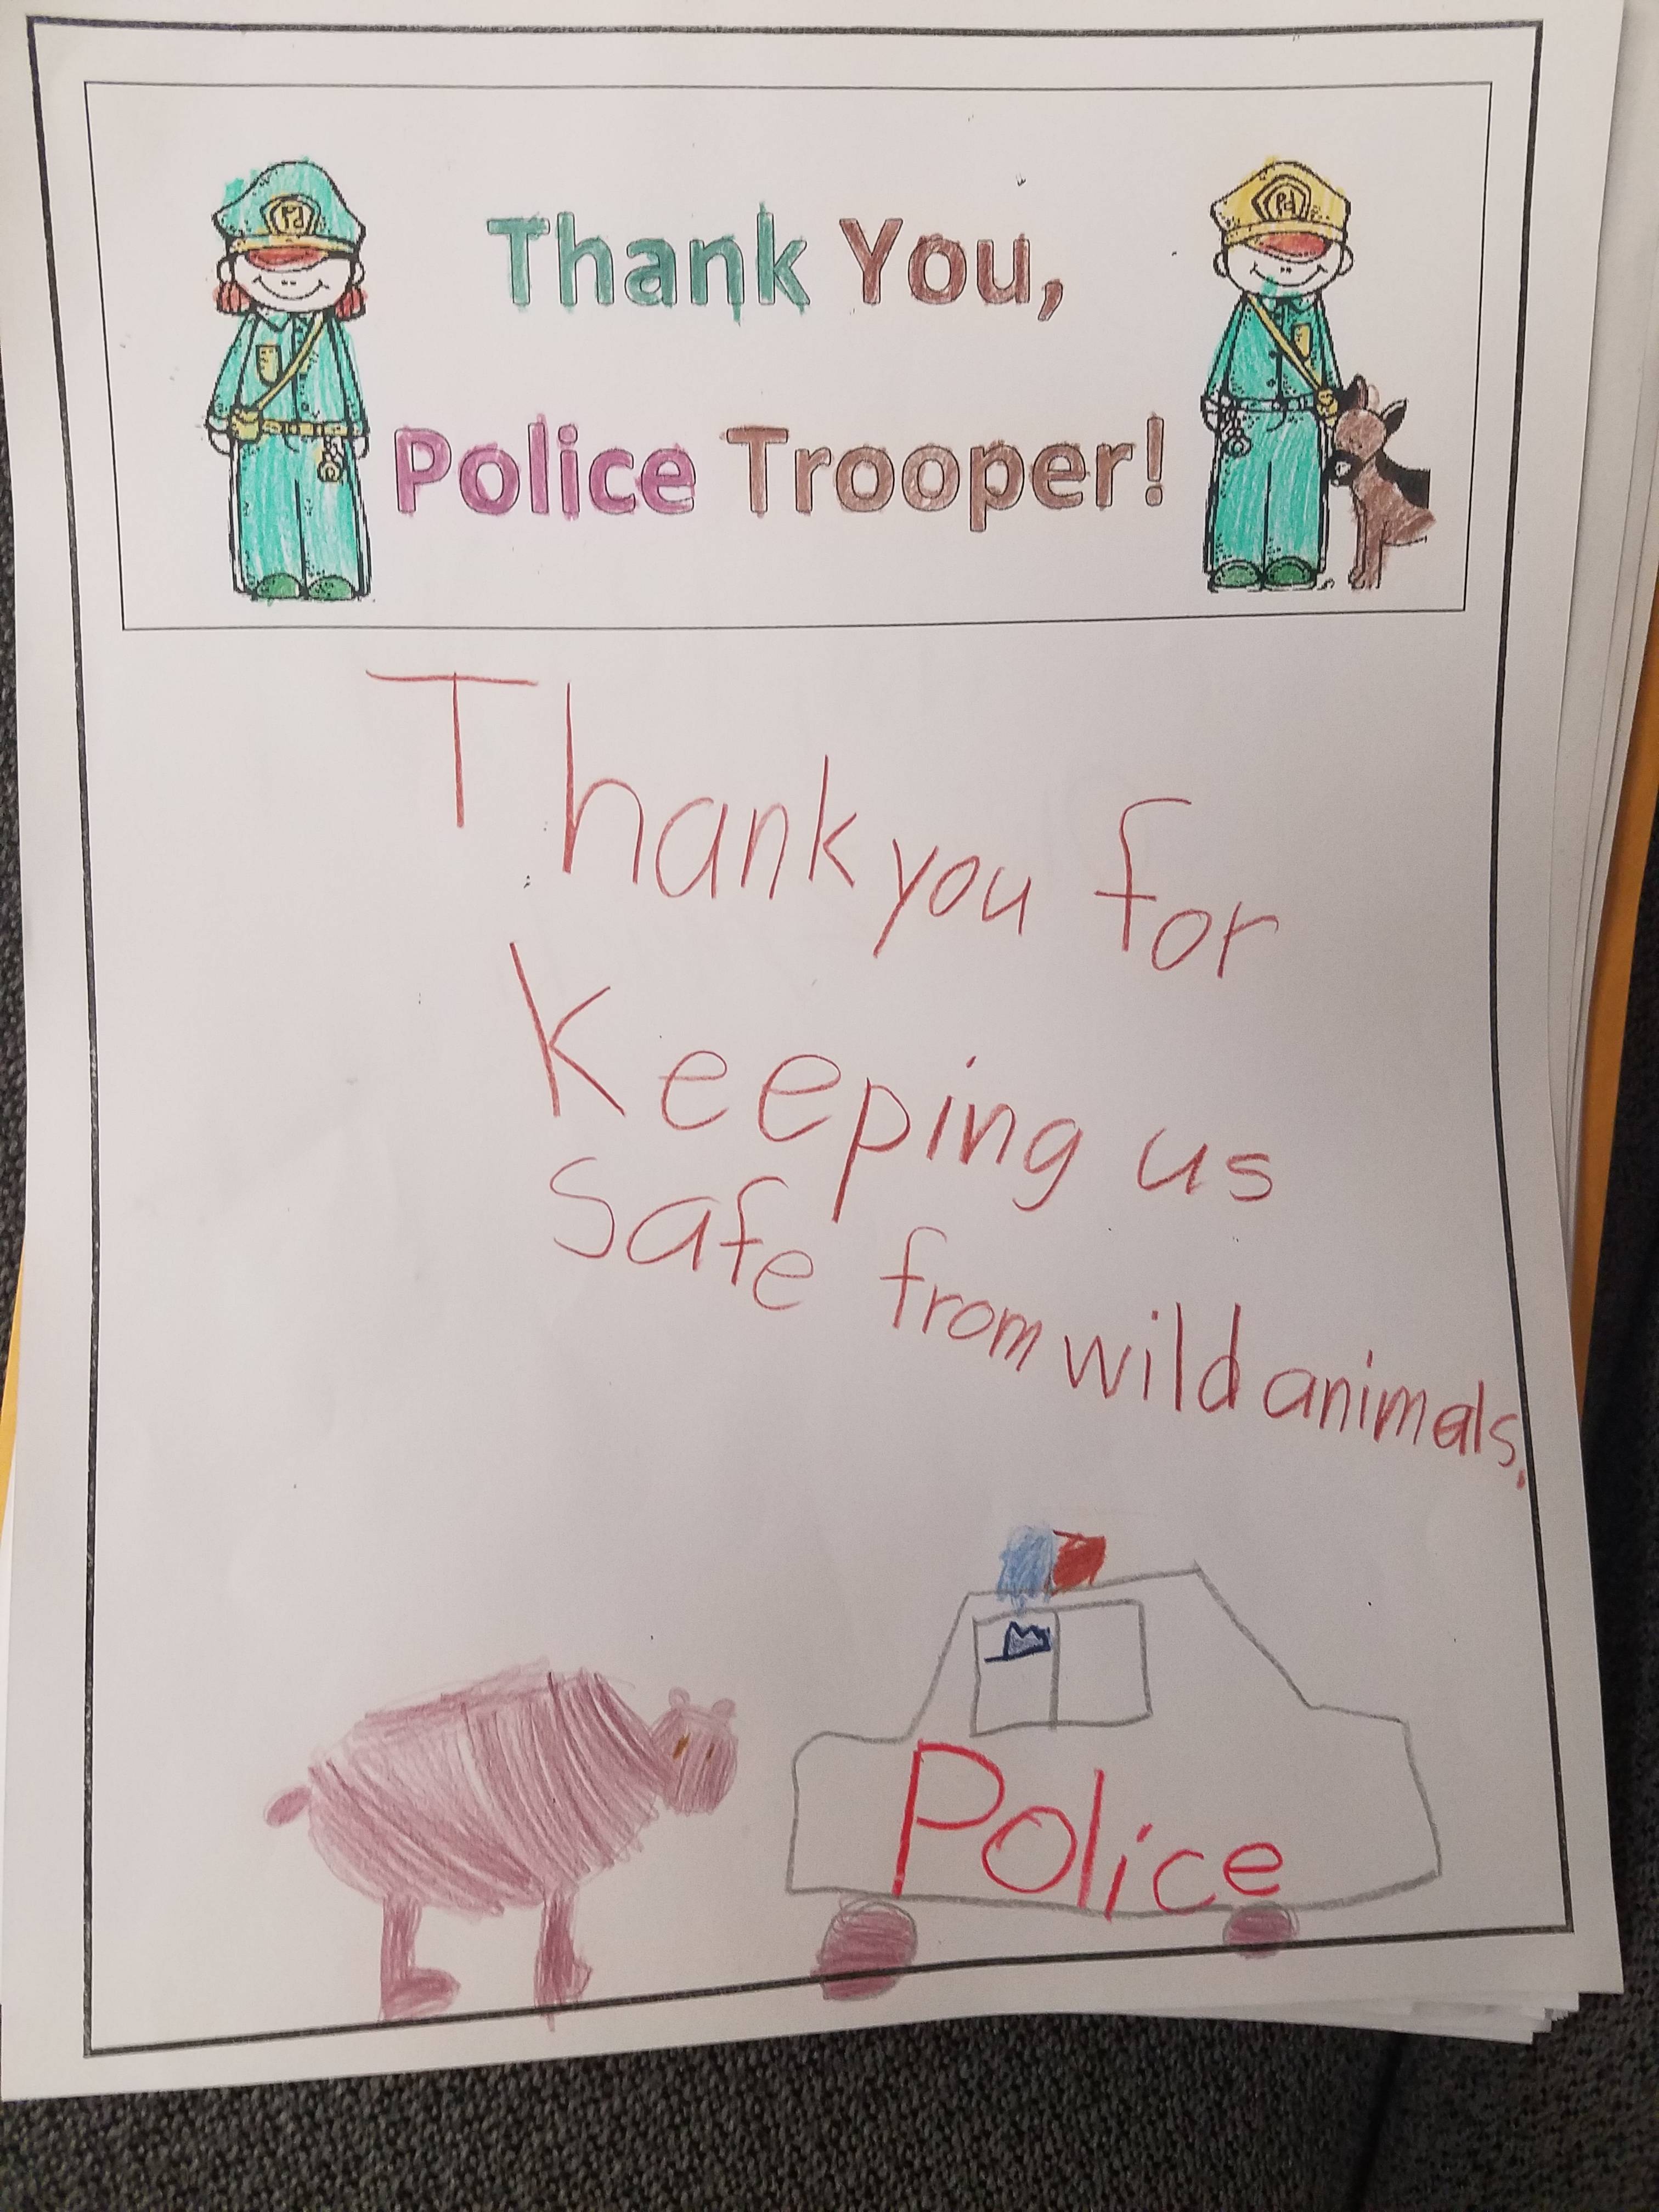 Thank You,
Police Trooper!
Pd
Pd
Thank you for
Keeping us
Safe from wild animals.
Police